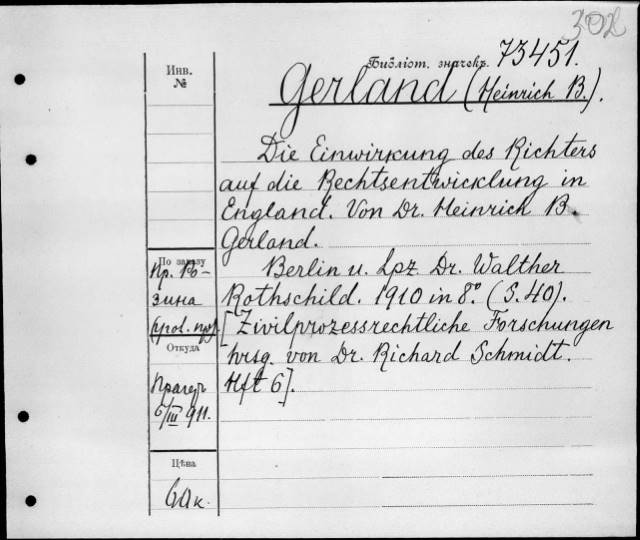 302
Библіот. значекъ. 73451.
Инв.
№
Gerland (Heinrich B.).
Die Einwirkung des Richters
auf die Rechtsentwicklung in
England. Von Dr. Heinrich B.
Gerland.
По заказу
Пр. Ро-
зина
Berlin u. Lpz. Dr. Walther
Rothschild. 1910 in 8º. (S. 40).
[Zivilprozessrechtliche Forschungen
hrsg. von Dr. Richard Schmidt.
Hft 6].
Откуда
Прагеръ
6/III 911.
Цѣна
60 к.